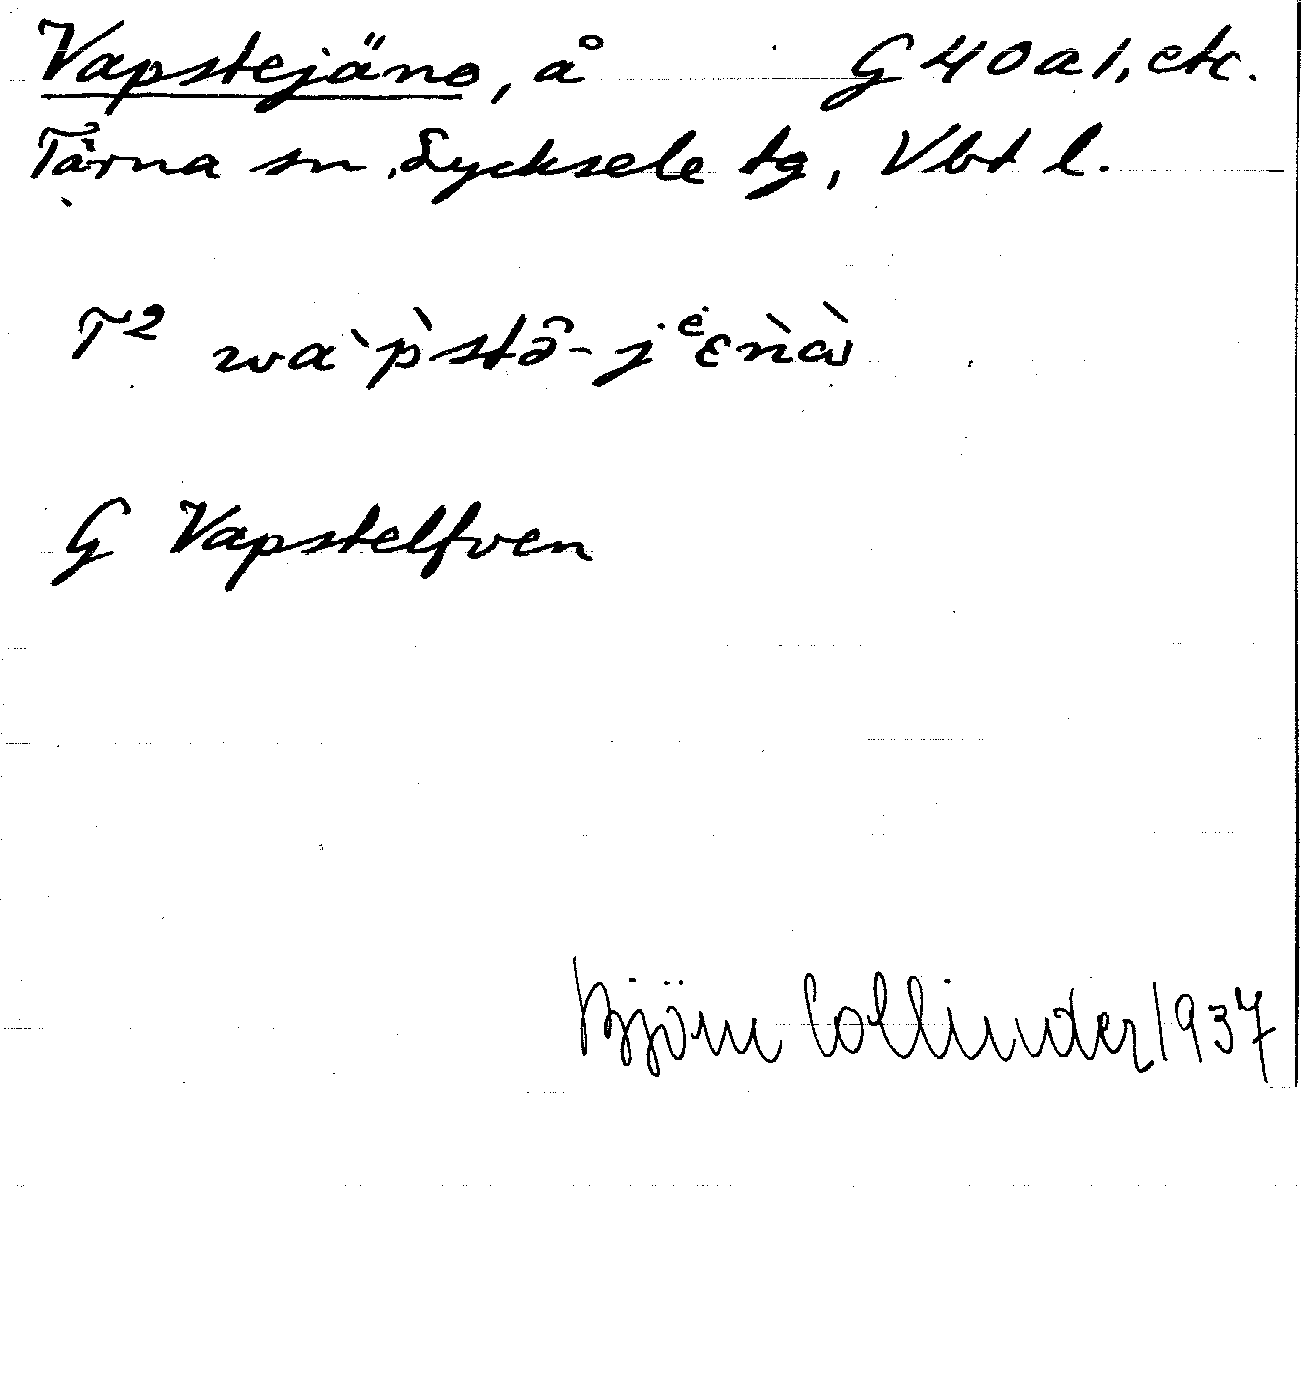 Vapstejäno, å G 40 a 1, etc.
Tärna sn, Lycksele tg, Vbt l.
T2
G Vapstelfven
Björn Collinder 1937